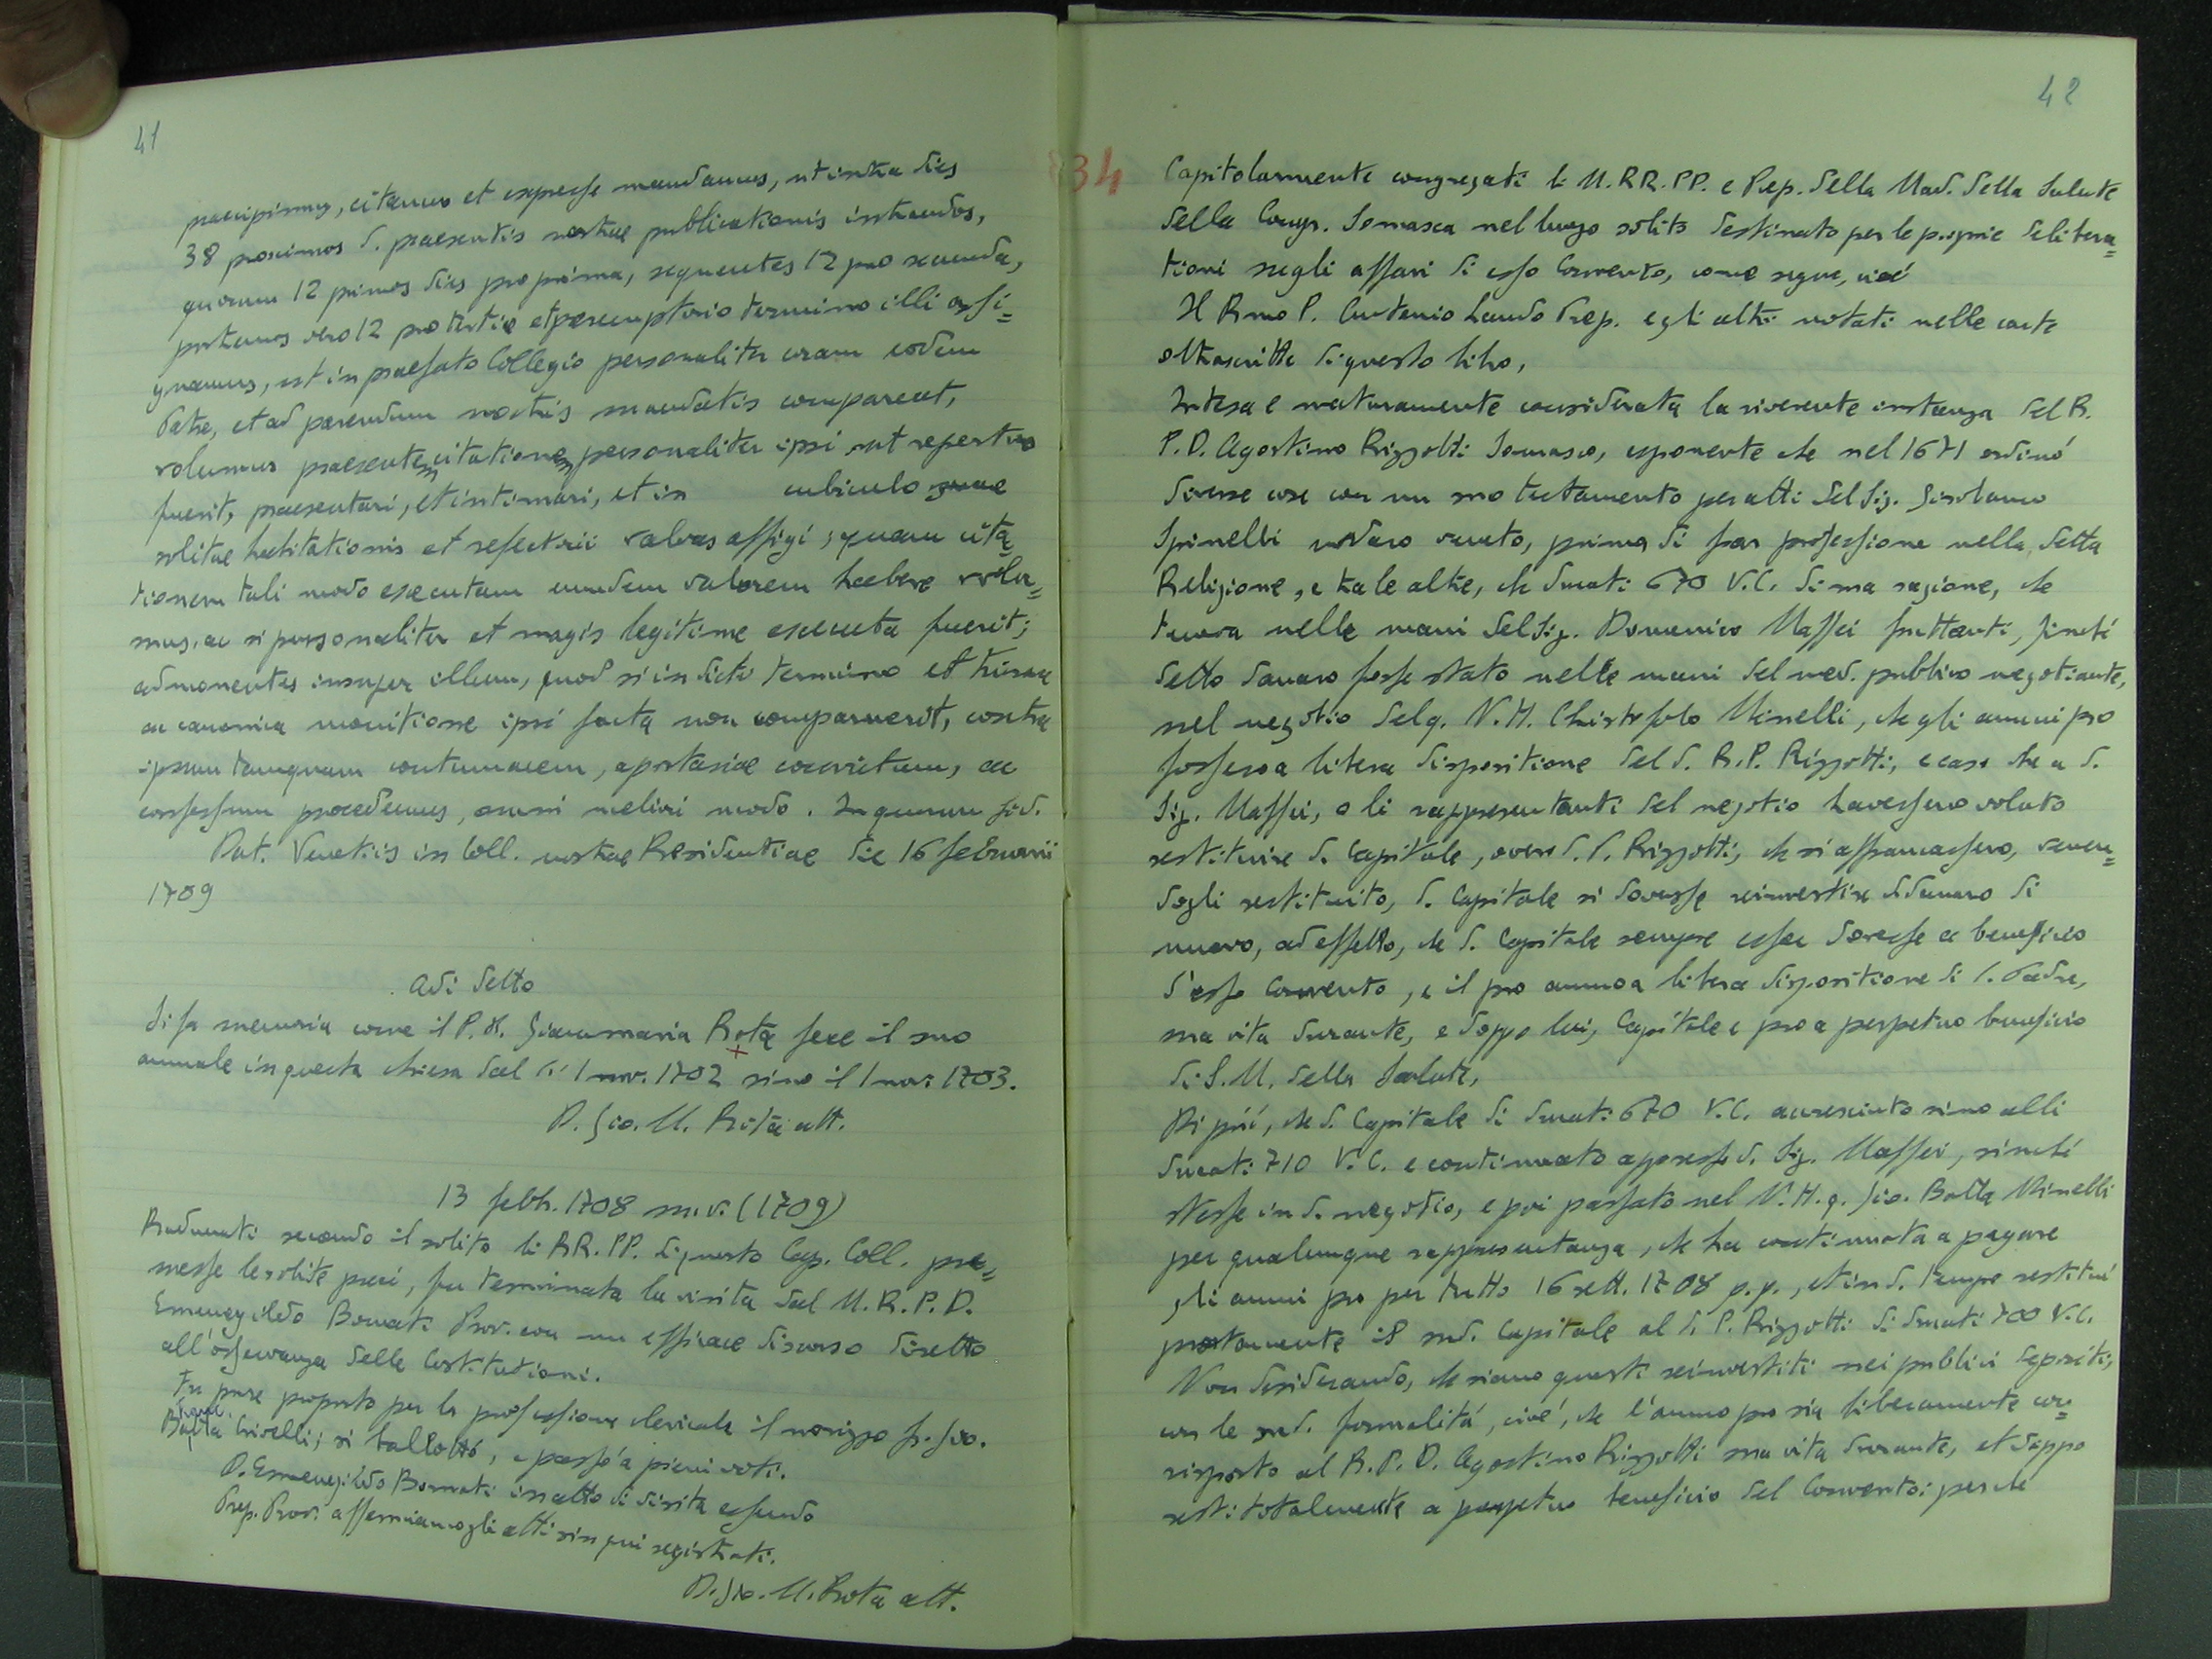 41
praecipimus, citamus et expresse mandamus, ut intra dies
38 proximos d. praesentis nostrae publicationis intrandos,
quorum 12 primos dies pro prima, sequentes 12 pro secunda,
postremos vero 12 pro tertio et peremptorio termino illi assi=
gnamus, ut in praefato Collegio personaliter coram eodem
Patre, et ad parendum nostris mandatis compareat,
volumus praesentem citationem personaliter ipsi sut repertus
fuerit, praesentari, et intimari, et in cubiculo suae
solitae habitationis et refectorii valvas affigi; quam cita
tionem tali modo executam eundem valorem habere volu=
mus, ac si personaliter et magis legitime executa fuerit;
admonentes insuper illum, quod si in dicto termino et trina
ac canonica monitione ipsi facta non comparuerit, contra
ipsum tamquam contumacem, apostasiae convictum, ac
confessum procedemus, omni meliori modo. In quorum fid.
Dat. Venetiis in Coll. nostrae Residentiae die 16 februarii
1709
Adi detto
Si fa memoria come il P. D. Gianmaria Rota fece il suo
annuale in questa chiesa dal dì 1 nov. 1702 sino il 1 nov. 1703.
D. Gio. M. Rota att.
13 febb. 1708 m.v. (1709)
Radunati secondo il solito li RR. PP. di questo Cap. Coll. pre=
messe le solite preci, fu terminata la visita dal M. R. P. D.
Emenegildo Bonati Prov. con un efficace discorso diretto
all'osservanza delle Costitutioni.
Fu pure proposto per la professione clericale il novizzo fr. Gio.
Batta Crivelli; si ballottò, e passò a pieni voti.
D. Emenegildo Bonati in atto di visita essendo
Prep. Prov. affermiamo gli atti sin qui registrati.
D. Gio. M. Rota att.
42
834
Capitolarmente congregati li M. RR. PP. e Prep. della Mad. della Salute
della Congr. Somasca nel luogo solito destinato per le proprie delibera=
tioni negli affari di esso Convento, come segue, cioè
Il Rmo P. Antonio Lando Prep. e gli altri notati nelle carte
oltrascritte di questo libro,
Intesa e maturamente considerata la riverente instanza del R.
P. D. Agostino Rizzotti Somasco, esponente che nel 1671 ordinò
diverse cose con un suo testamento per atti del Sig. Girolamo
Spinelli nodaro veneto, prima di far professione nella detta
Religione, e tra le altre, che ducati 670 V.C. di sua ragione, che
teneva nelle mani del Sig. Domenico Maffei fruttanti, sinché
detto danaro fosse stato nelle mani del med. publico negotiante,
nel negotio del q. N.H. Christofolo Minelli, che gli annui pro
fossero a libera dispositione del d. R.P. Rizzotti, e caso che a d.
Sig. Maffei, o li rappresentanti del negotio havessero voluto
restituire d. Capitale, overo d. P. Rizzotti, che si affrancassero, venen=
dogli restituito, d. Capitale si dovesse reinvestire il danaro di
nuovo, ad effetto, che d. Capitale sempre esser dovesse a beneficio
d'esso Convento, e il pro annuo a libera dispositione di d. Padre,
sua vita durante, e doppo lui, Capitale e pro a perpetuo beneficio
di S.M. della Salute,
Di più, che d. Capitale di ducati 670 V.C. accresciuto sino alli
ducati 710 V.C. e continuato appresso d. Sig. Maffei, sinché
stesse in d. negotio, e poi passato nel N.H. q. Gio. Batta Minelli
per qualunque rappresentanza, che ha continuata a pagare
gli annui pro per tutto 16 sett. 1708 p.p., et in d. tempo restituì
prontamente il sud. Capitale al d. P. Rizzotti di ducati 700 V.C.
Non desiderando, che siano questi reinvestiti nei publici depositi,
con le sud. formalità, cioè, che l'annuo pro sia liberamente cor=
risposto al R. P. D. Agostino Rizzotti sua vita durante, et doppo
resti totalmente a perpetuo beneficio del Convento: perché